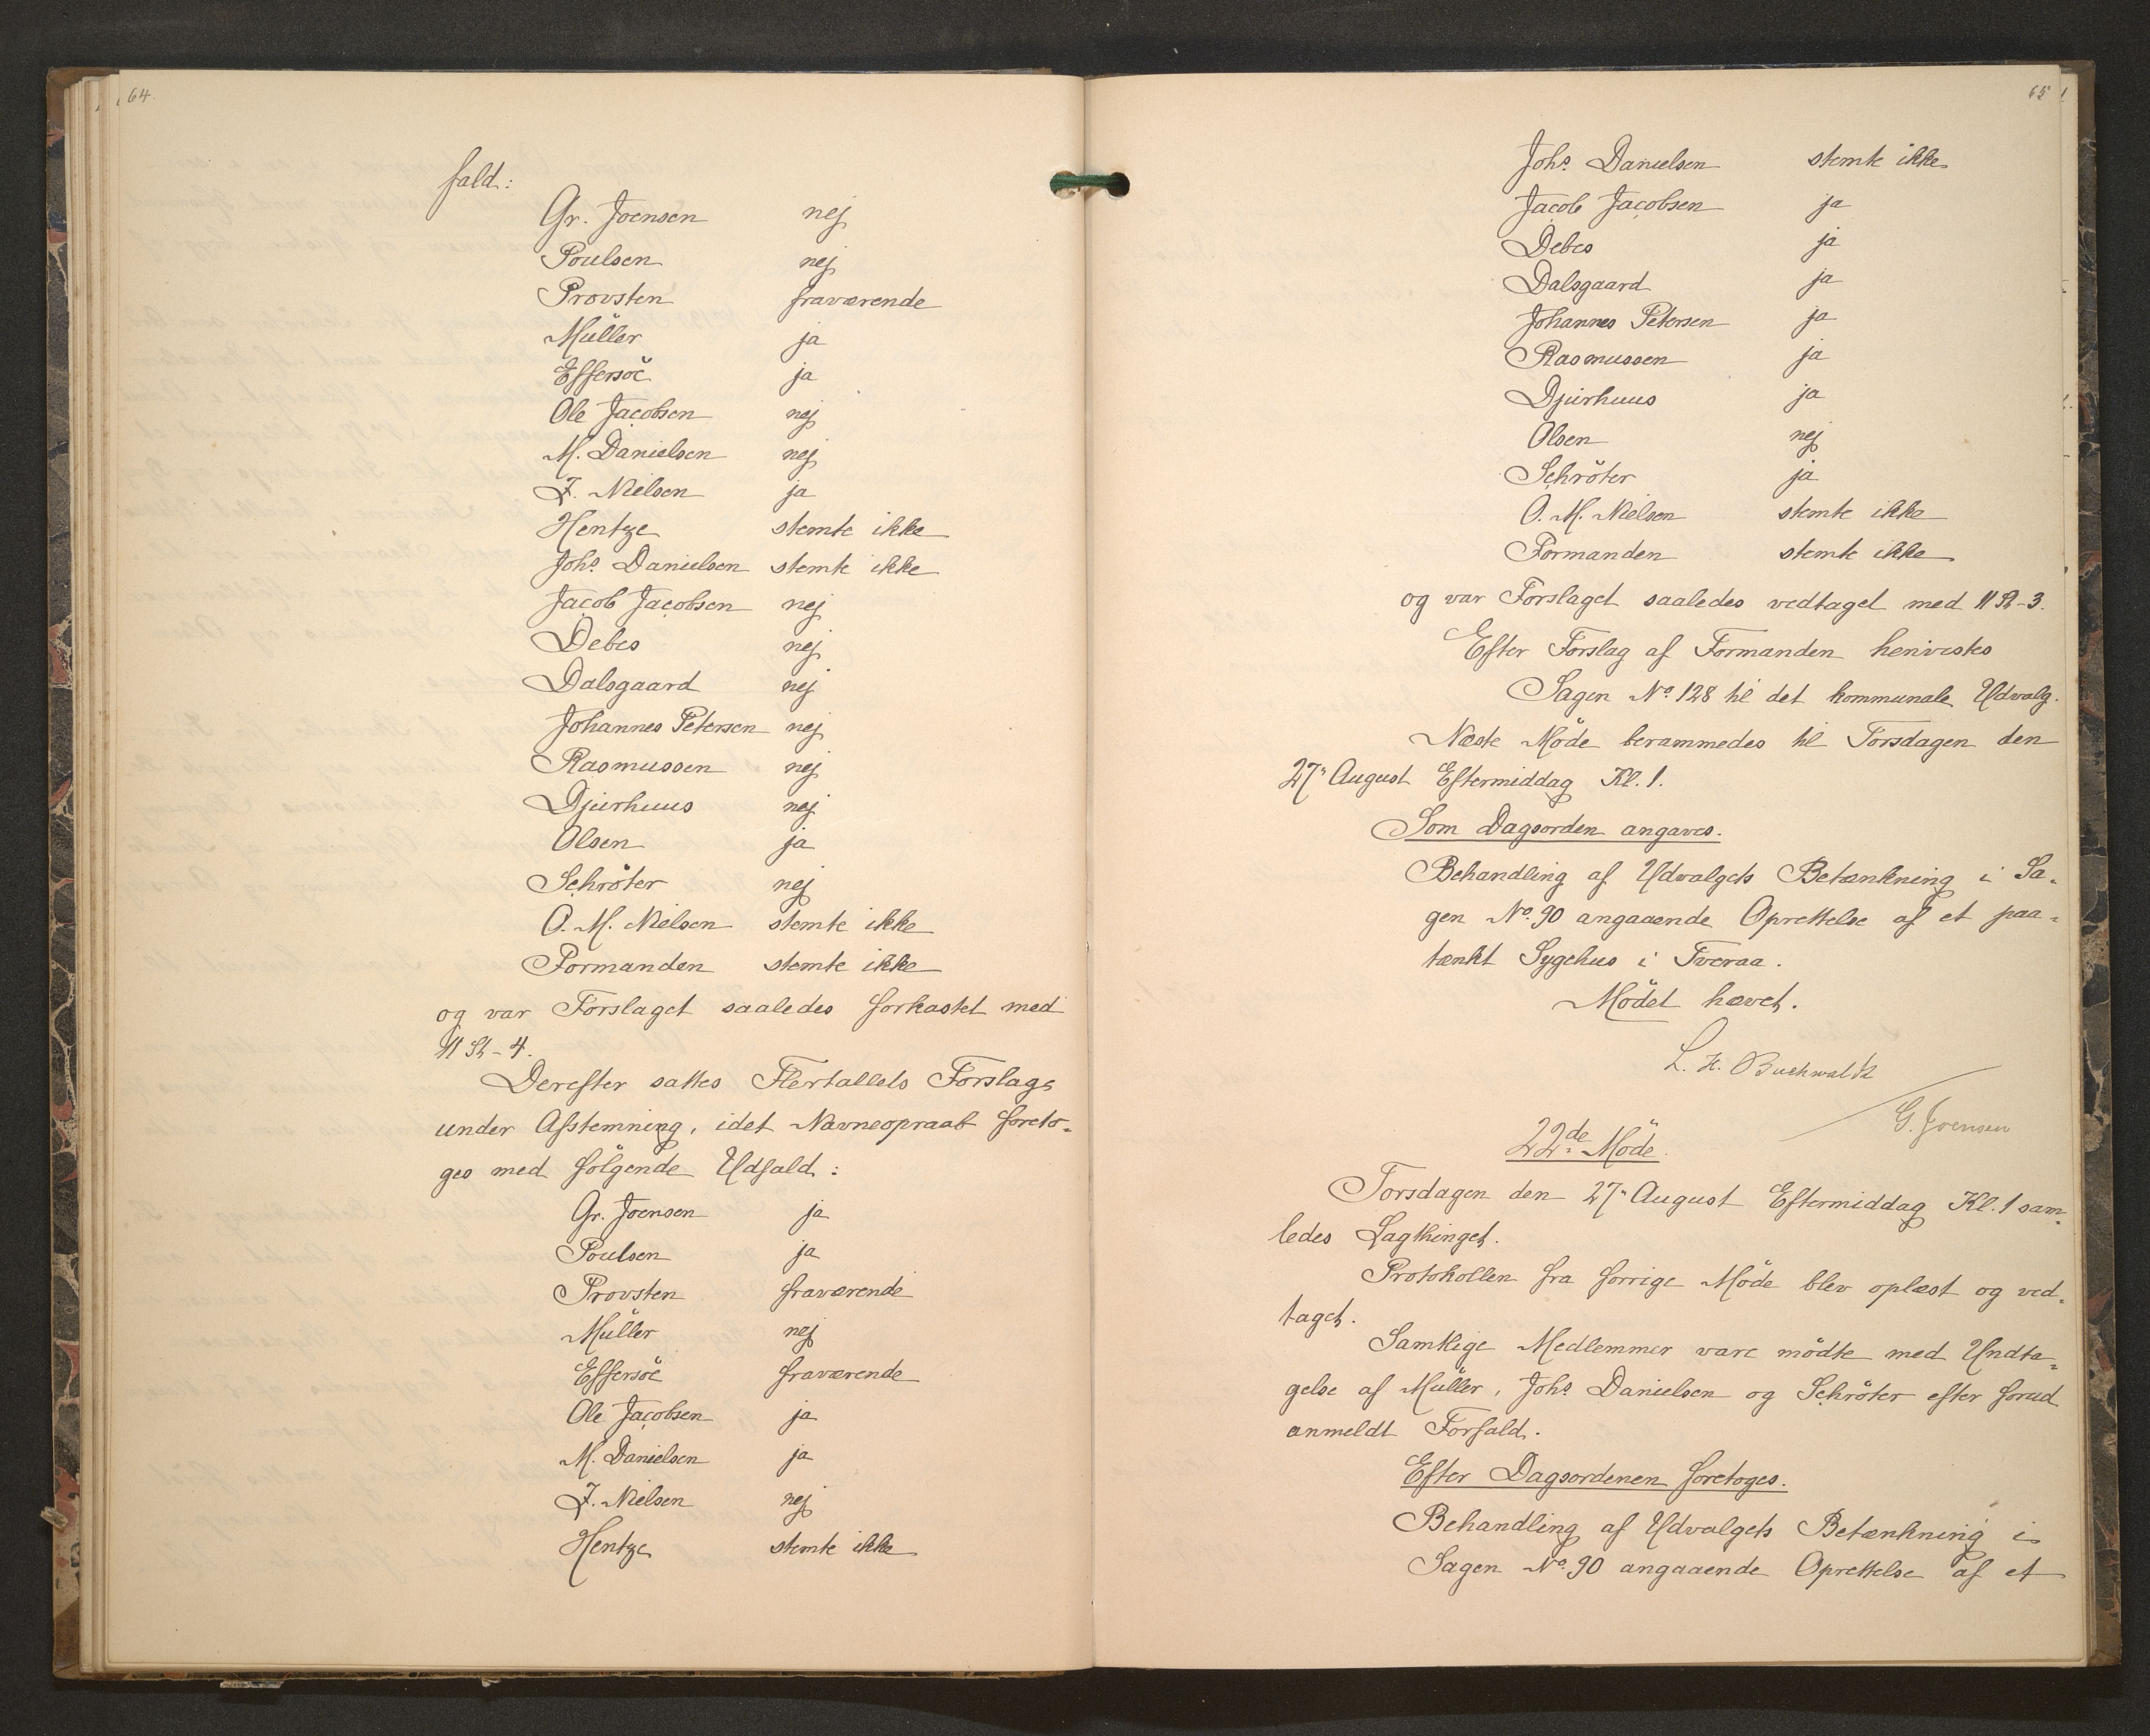 64.
fald:
Gr. Joensen nej
Poulsen nej
Provsten fraværende
Müller ja
Effersöe ja
Ole Jacobsen nej
M. Danielsen nej
J. Nielsen ja
Hentze stemte ikke
Johs. Danielsen stemte ikke
Jacob Jacobsen nej
Debes nej
Dalsgaard nej
Johannes Petersen nej
Rasmussen nej
Djurhuus nej
Olsen ja
Schröter nej
O. M. Nielsen stemte ikke
Formanden stemte ikke
og var Forslaget saaledes forkastet med
11 St-4.
Derefter sattes Flertallets Forslag
under Afstemning, idet Navneopraab foreto-
ges med fölgende Udfald:
Gr. Joensen ja
Poulsen ja
Provsten fraværende
Müller nej
Effersöe fraværende
Ole Jacobsen ja
M. Danielsen ja
J. Nielsen nej
Hentze stemte ikke
65
Johs. Danielsen stemte ikke
Jacob Jacobsen ja
Debes ja
Dalsgaard ja
Johannes Petersen ja
Rasmussen ja
Djurhuus ja
Olsen nej
Schröter ja
O. M. Nielsen stemte ikke
Formanden stemte ikke
og var Forslaget saaledes vedtaget med 11 St-3.
Efter Forslag af Formanden henvistes
Sagen No. 128 til det kommunale Udvalg.
Næste Möde berammedes til Torsdagen den
27" August Eftermiddag Kl. 1.
Som Dagsorden angaves.
Behandling af Udvalgets Betænkning i Sa-
gen No. 90 angaaende Oprettelse af et paa-
tænkt Sygehus i Tveraa.
Mödet hævet.
L. H. Buchwaldt
G. Joensen
22de Möde.
Torsdagen den 27" August Eftermiddag Kl. 1 sam-
ledes Lagthinget.
Protokollen fra forrige Möde blev oplæst og ved-
taget.
Samtlige Medlemmer vare mödte med Undta-
gelse af Müller, Johs. Danielsen og Schröter efter forud
anmeldt Forfald.
Efter Dagsordenen foretoges.
Behandling af Udvalgets Betænkning i
Sagen No. 90 angaaende Oprettelse af et